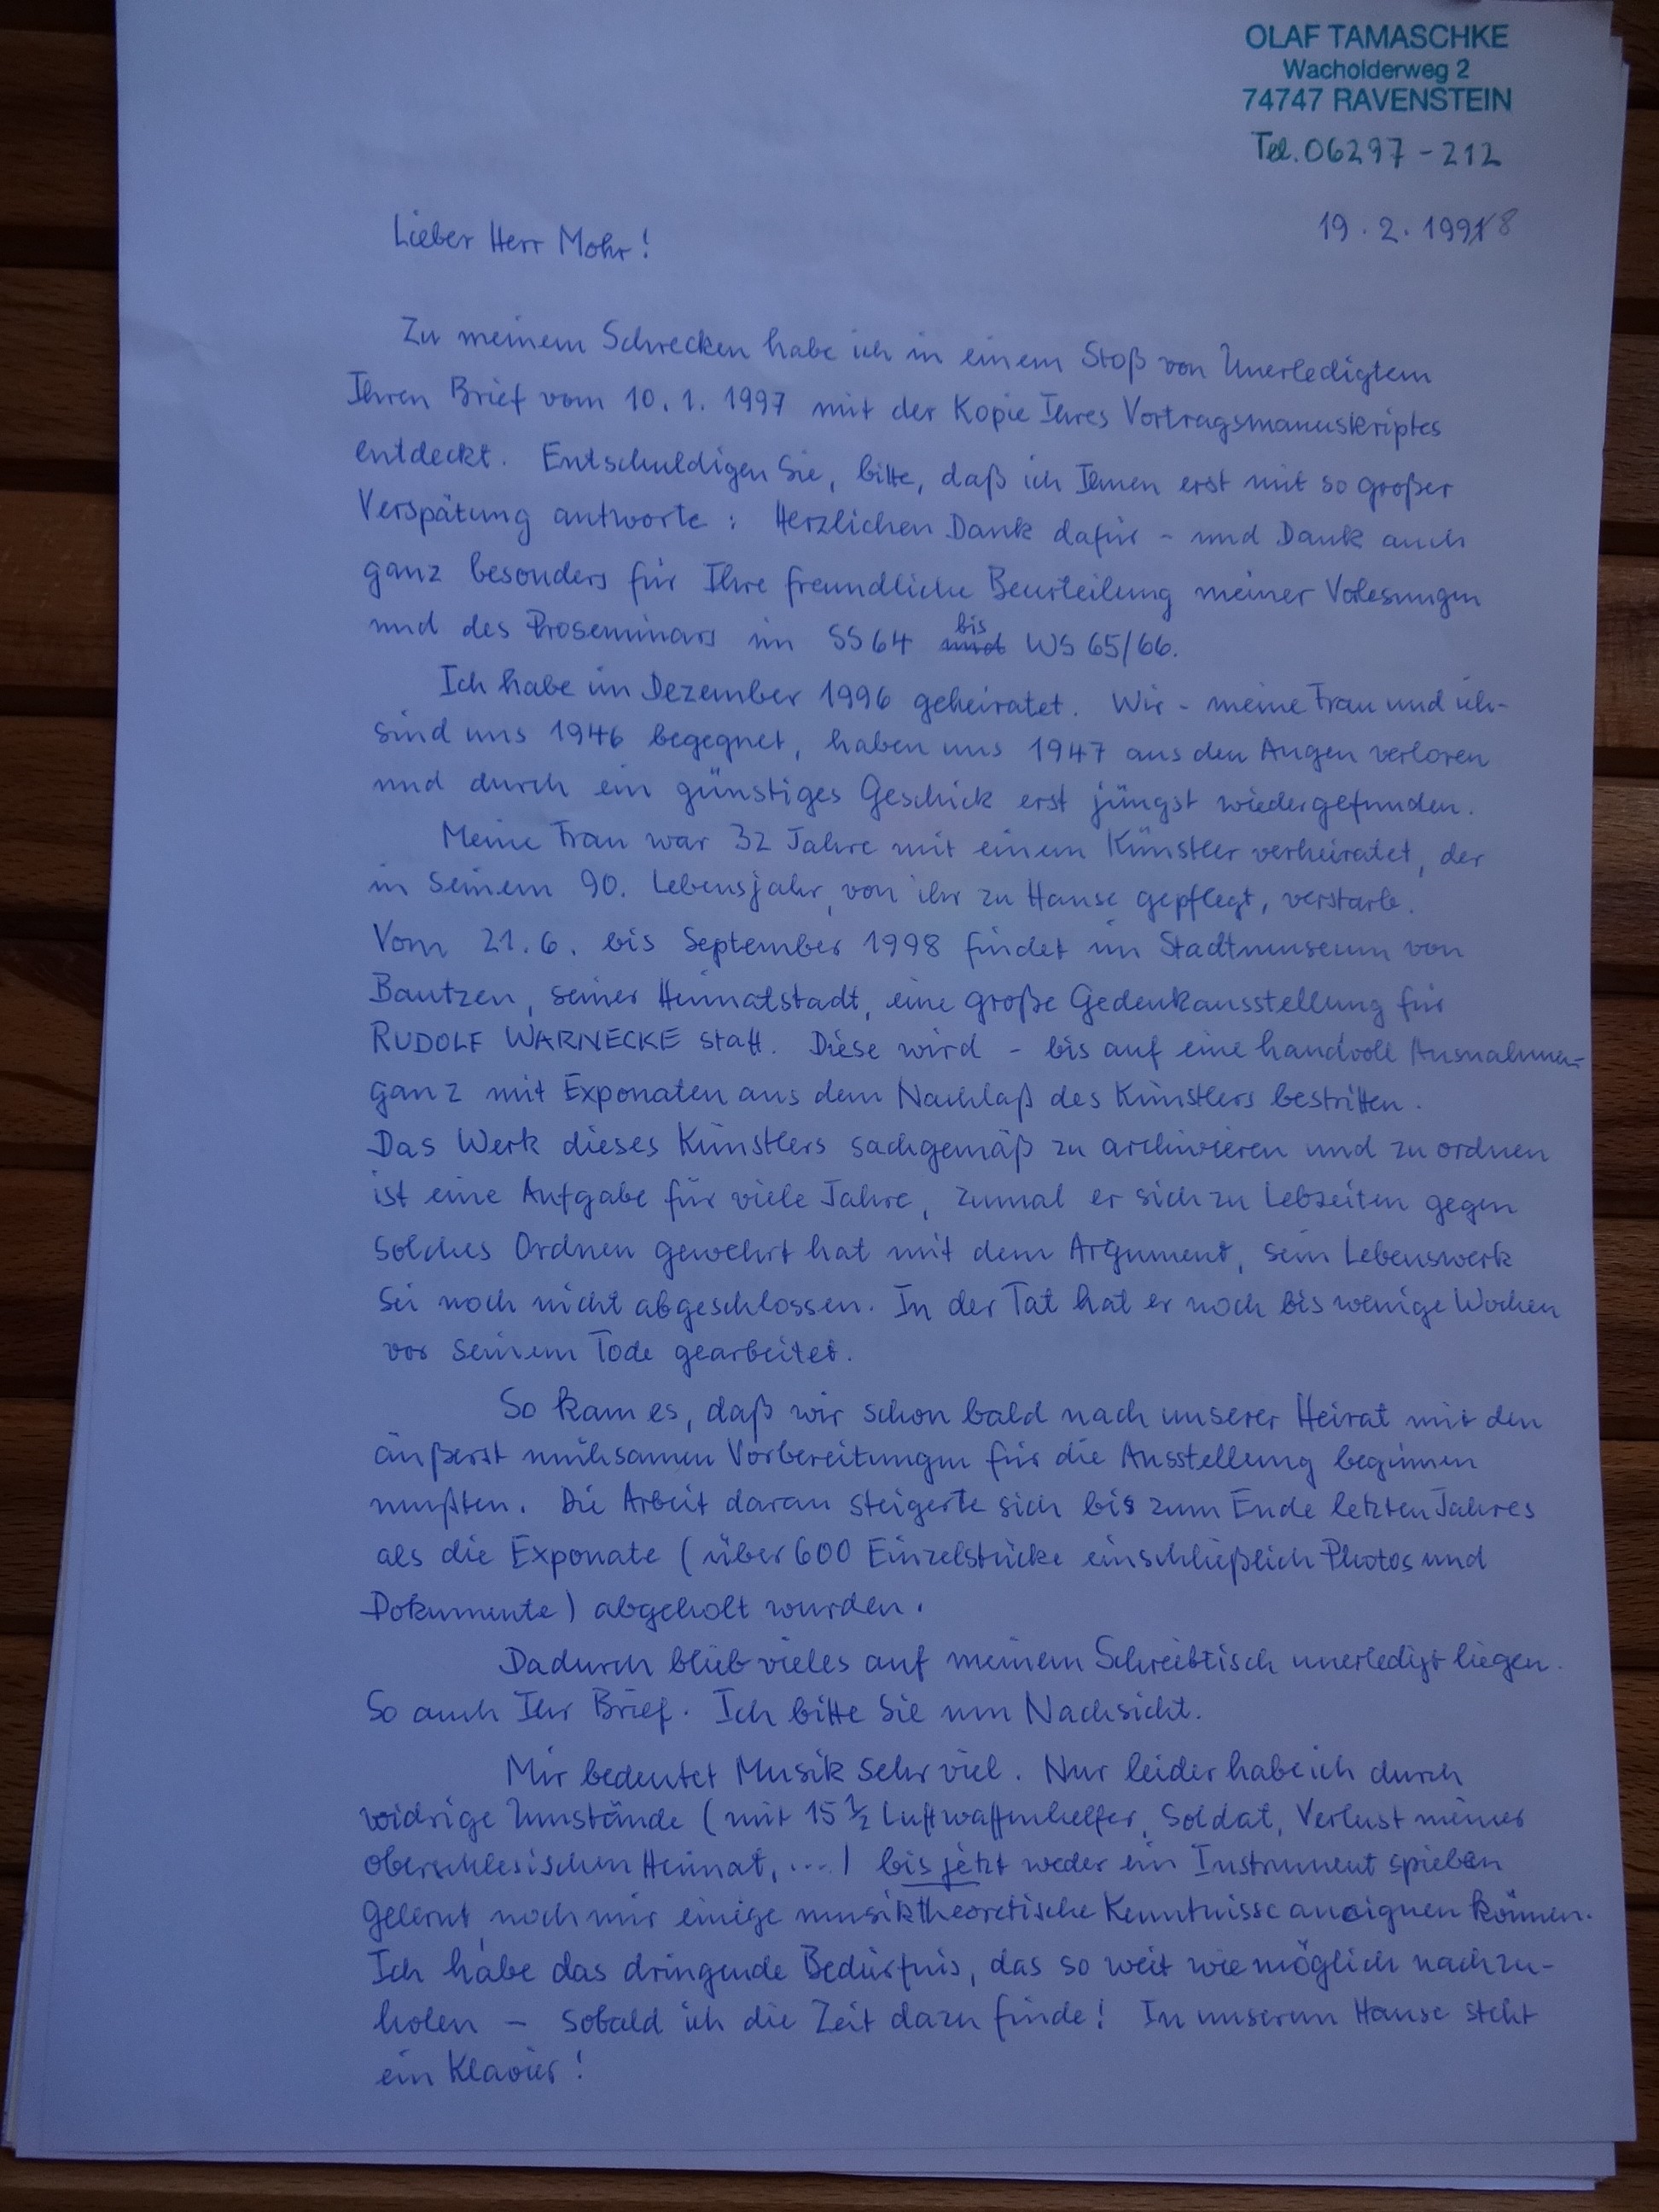 OLAF TAMASCHKE
Wacholderweg 2
74747 RAVENSTEIN
Tel. 06297 - 212
19. 2. 1998
Lieber Herr Mohr!
Zu meinem Schrecken habe ich in einem Stoß von Unerledigtem
Ihren Brief vom 10. 1. 1997 mit der Kopie Ihres Vortragsmanuskriptes
entdeckt. Entschuldigen Sie, bitte, daß ich Ihnen erst mit so großer
Verspätung antworte: Herzlichen Dank dafür - und Dank auch
ganz besonders für Ihre freundliche Beurteilung meiner Vorlesungen
und des Proseminars im SS 64 bis WS 65/66.
Ich habe im Dezember 1996 geheiratet. Wir - meine Frau und ich -
sind uns 1946 begegnet, haben uns 1947 aus den Augen verloren
und durch ein günstiges Geschick erst jüngst wiedergefunden.
Meine Frau war 32 Jahre mit einem Künstler verheiratet, der
in seinem 90. Lebensjahr, von ihr zu Hause gepflegt, verstarb.
Vom 21. 6. bis September 1998 findet im Stadtmuseum von
Bautzen, seiner Heimatstadt, eine große Gedenkausstellung für
RUDOLF WARNECKE statt. Diese wird - bis auf eine handvoll Ausnahmen -
ganz mit Exponaten aus dem Nachlaß des Künstlers bestritten.
Das Werk dieses Künstlers sachgemäß zu archivieren und zu ordnen
ist eine Aufgabe für viele Jahre, zumal er sich zu Lebzeiten gegen
solches Ordnen gewehrt hat mit dem Argument, sein Lebenswerk
sei noch nicht abgeschlossen. In der Tat hat er noch bis wenige Wochen
vor seinem Tode gearbeitet.
So kam es, daß wir schon bald nach unserer Heirat mit den
äußerst mühsamen Vorbereitungen für die Ausstellung beginnen
mußten. Die Arbeit daran steigerte sich bis zum Ende letzten Jahres
als die Exponate (über 600 Einzelstücke einschließlich Photos und
Dokumente) abgeholt wurden.
Dadurch blieb vieles auf meinem Schreibtisch unerledigt liegen.
So auch Ihr Brief. Ich bitte Sie um Nachsicht.
Mir bedeutet Musik sehr viel. Nur leider habe ich durch
widrige Umstände (mit 15 ½ Luftwaffenhelfer, Soldat, Verlust meiner
oberschlesischen Heimat, ....) bis jetzt weder ein Instrument spielen
gelernt, noch mir einige musiktheoretische Kenntnisse aneignen können.
Ich habe das dringende Bedürfnis, das so weit wie möglich nachzu-
holen - sobald ich die Zeit dazu finde! In unserem Hause steht
ein Klavier!